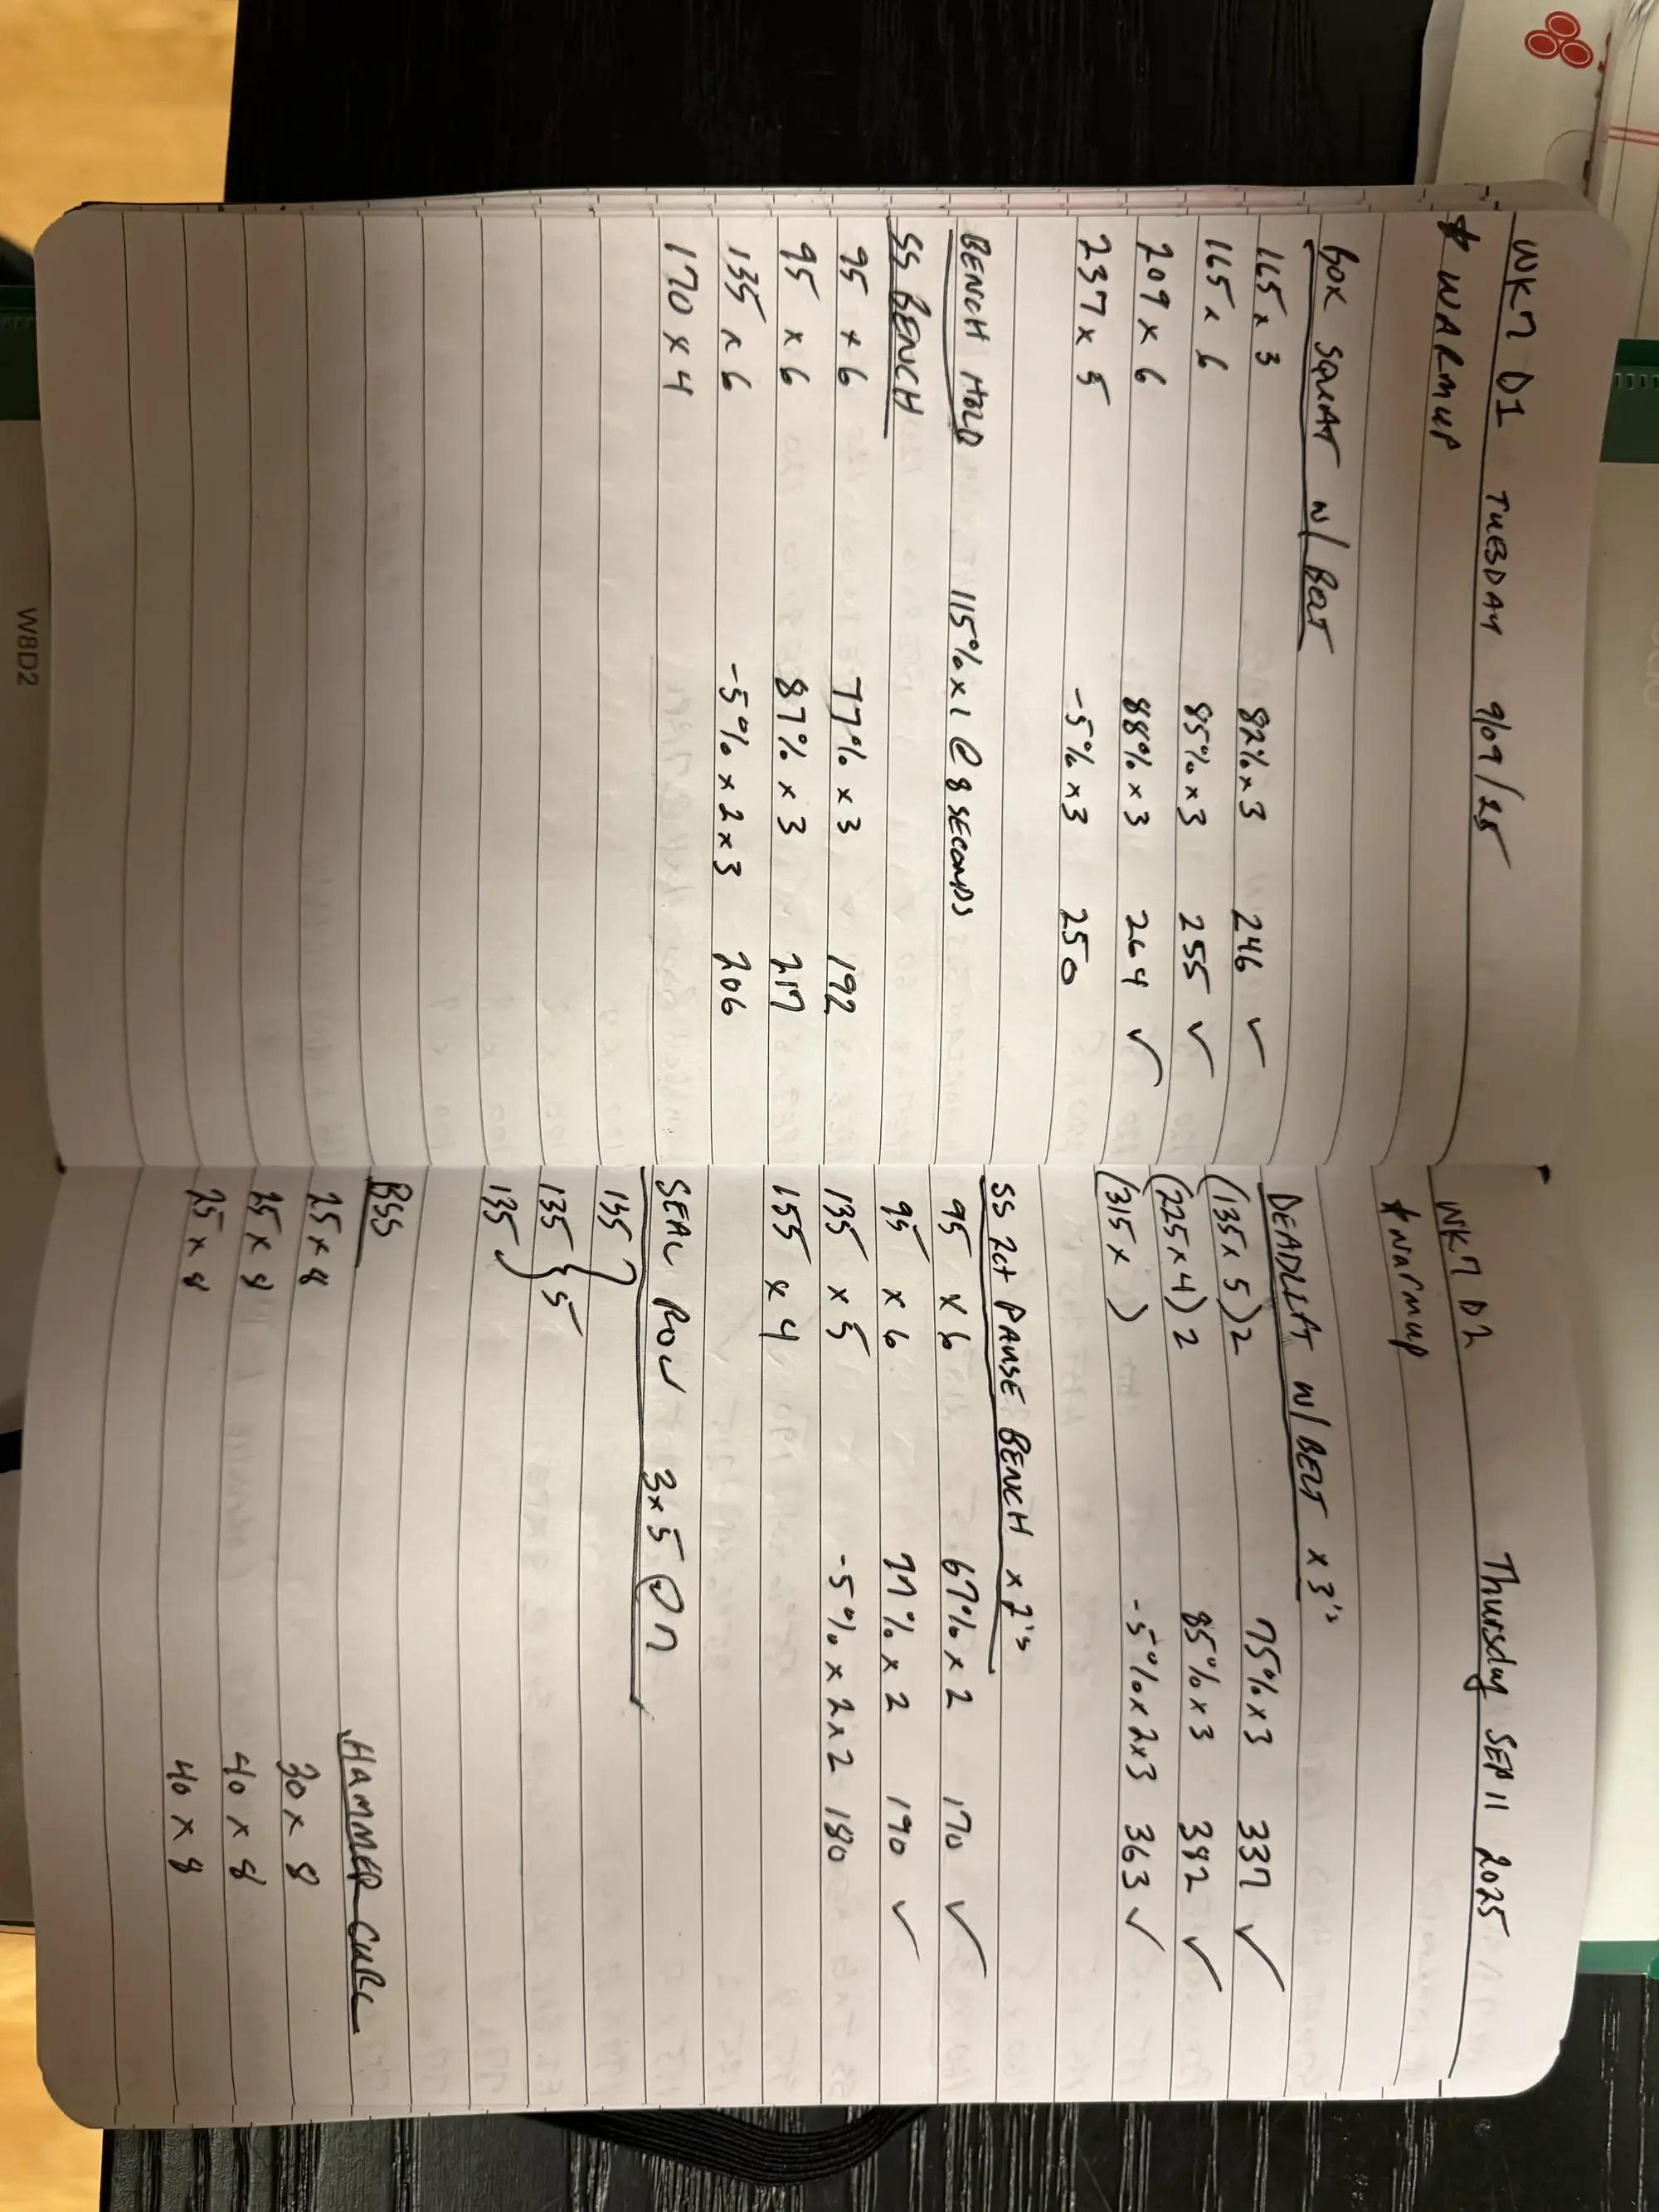 WK7 D1 TUESDAY 9/09/25
* WARMUP
BOX SQUAT w/ BELT
165 x 3 82% x 3 246 ✓
165 x 6 85% x 3 255 ✓
209 x 6 88% x 3 264 ✓
237 x 5 -5% x 3 250
BENCH HOLD 115% x 1 @ 8 SECONDS
SS BENCH
95 x 6 77% x 3 192
95 x 6 87% x 3 217
135 x 6 -5% x 2 x 3 206
170 x 4
WK7 D2 Thursday SEP 11 2025
* warmup
DEADLIFT w/ BELT x 3's
(135 x 5) 2 75% x 3 337 ✓
(225 x 4) 2 85% x 3 382 ✓
(315 x ) -5% x 2 x 3 363 ✓
SS 2ct PAUSE BENCH x 2's
95 x 6 67% x 2 170 ✓
95 x 6 77% x 2 190 ✓
135 x 5 -5% x 2 x 2 180
155 x 4
SEAL ROW 3 x 5 @ 7
135
135 } 5
135
BSS HAMMER CURL
25 x 8 30 x 8
25 x 8 40 x 8
25 x 8 40 x 8
W8D2